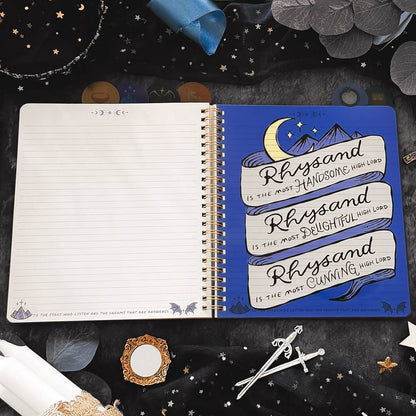 Rhysand
IS THE MOST HANDSOME HIGH LORD
Rhysand
IS THE MOST DELIGHTFUL HIGH LORD
Rhysand
IS THE MOST CUNNING HIGH LORD
TO THE STARS WHO LISTEN AND THE DREAMS THAT ARE ANSWERED